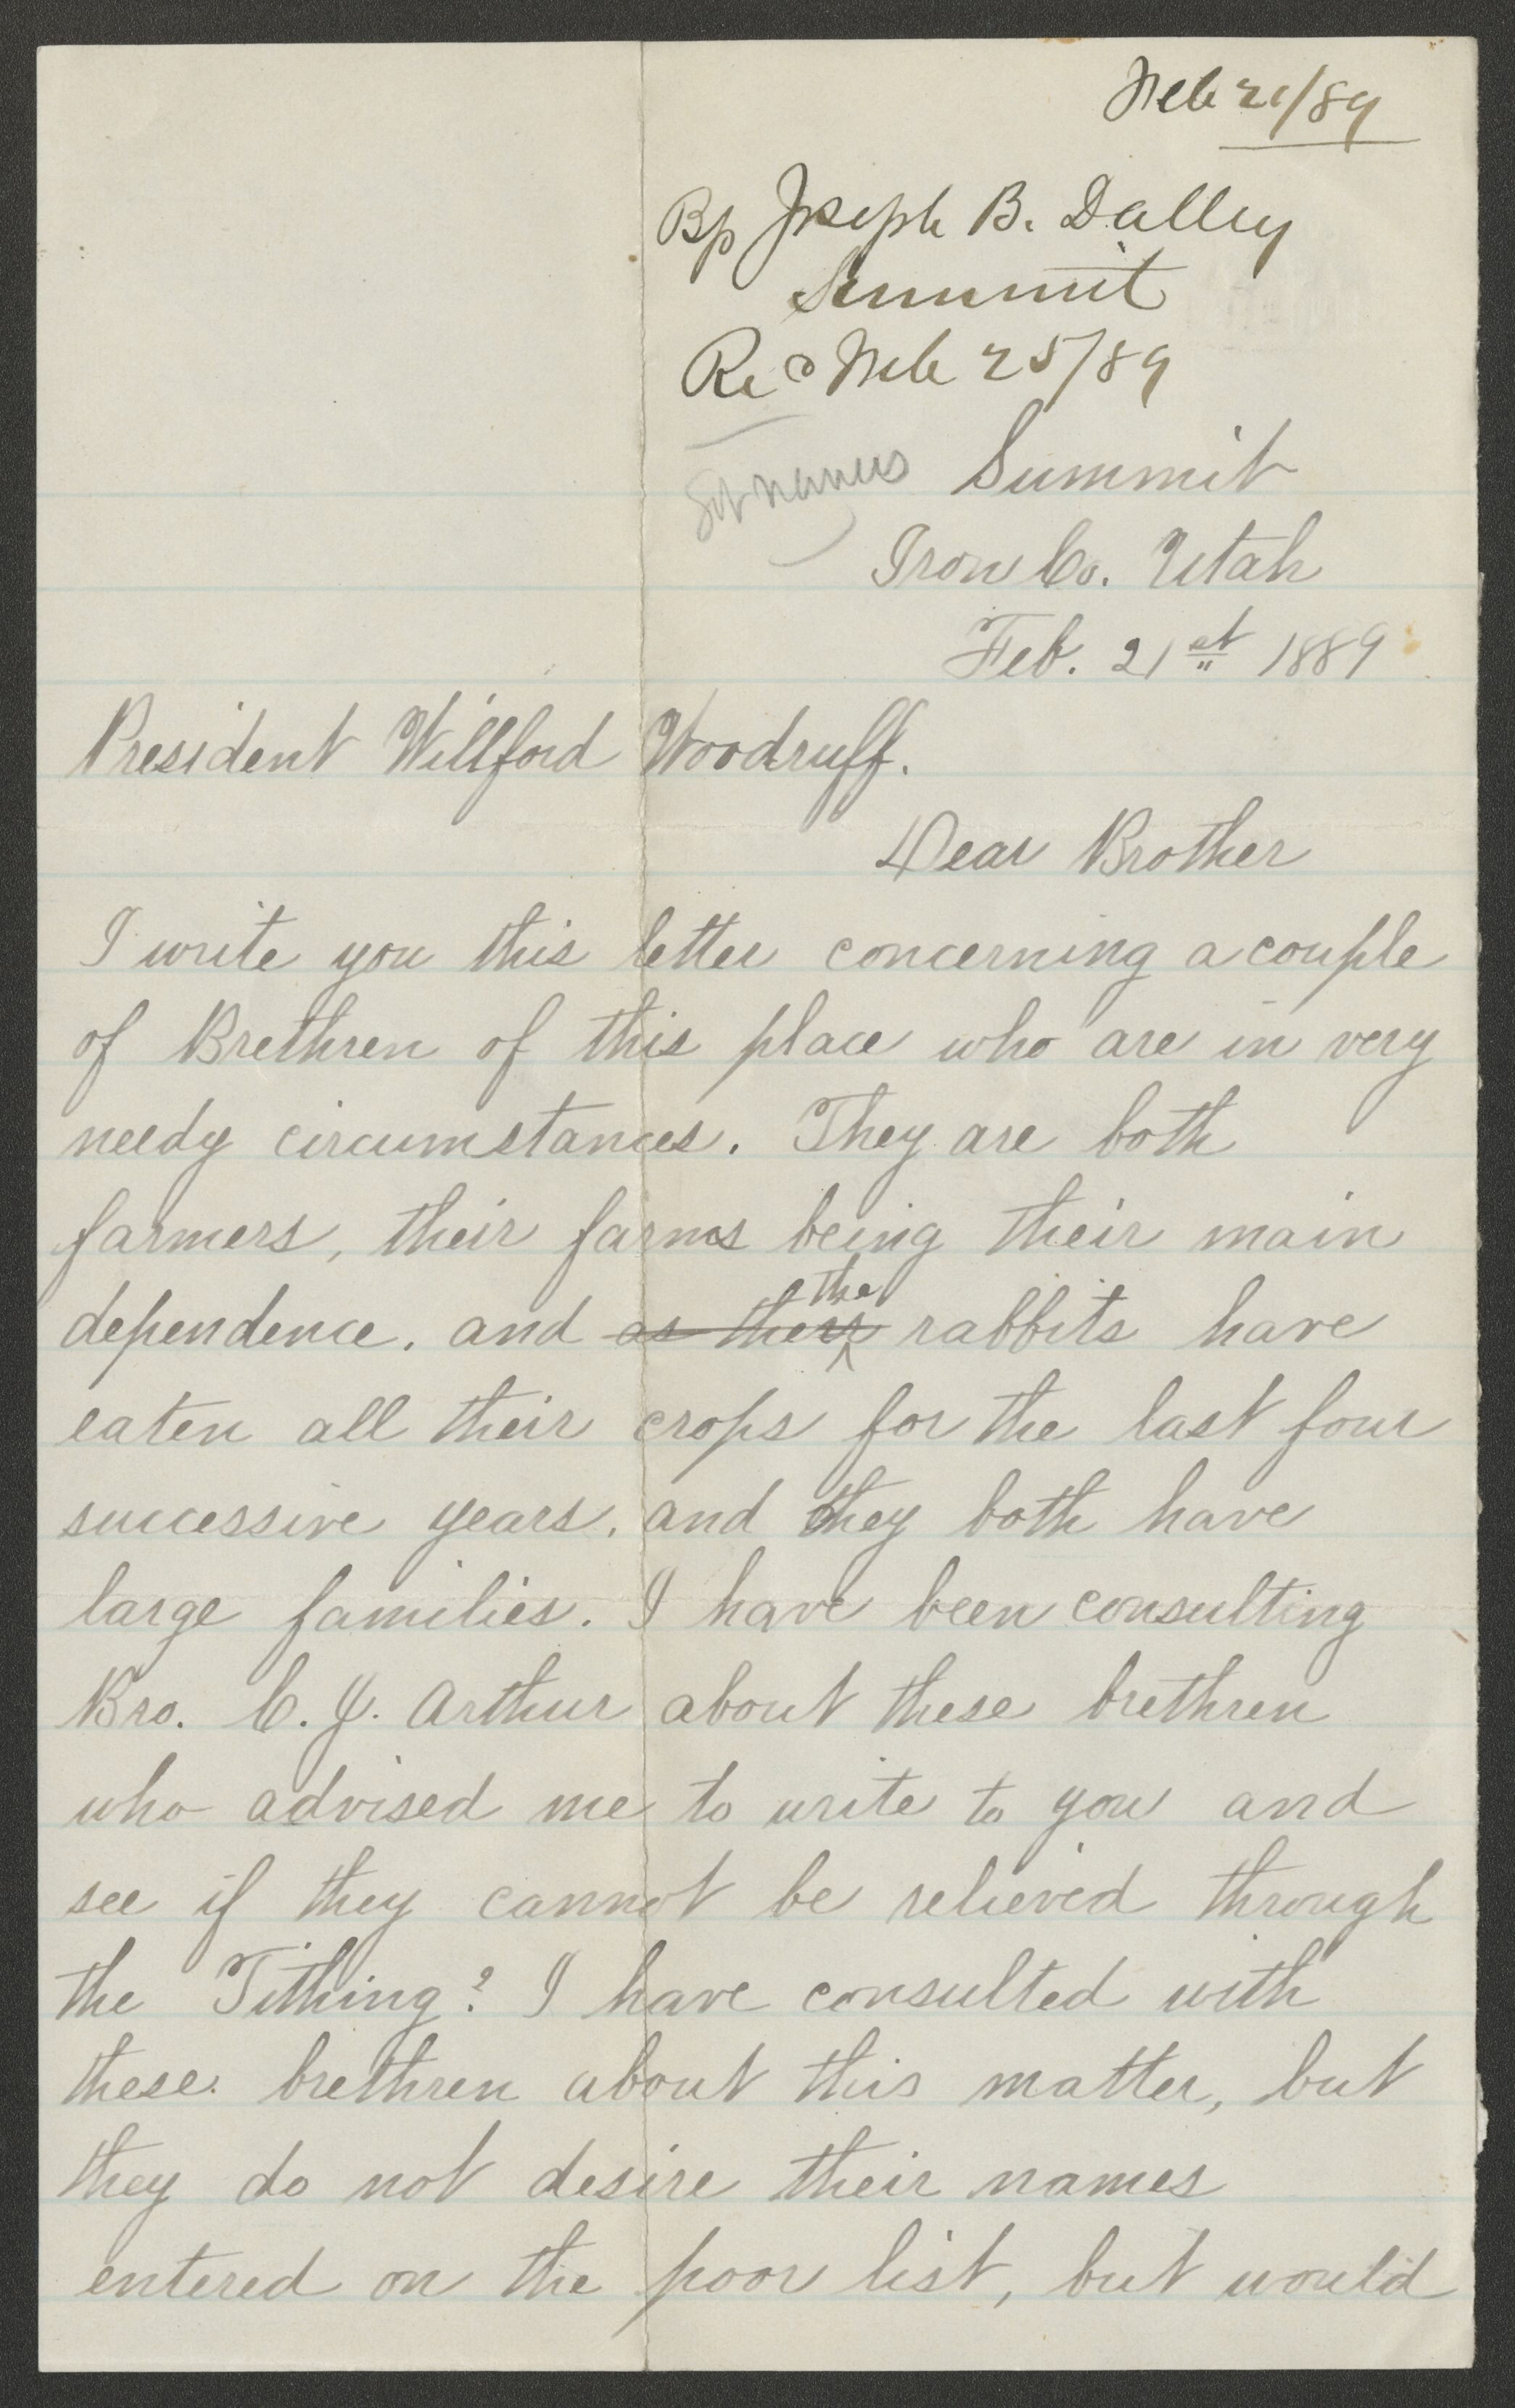 Feb 21/89
Bp Joseph B. Dalley
Summit
Recd Feb 25/89
Get names
Summit
Iron Co. Utah
Feb. 21st 1889
President Willford Woodruff.
Dear Brother
I write you this letter concerning a couple
of Brethren of this place who are in very
needy circumstances. They are both
farmers, their farms being their main
dependence. and as their the rabbits have
eaten all their crops for the last four
successive years. and they both have
large families. I have been consulting
Bro. C. J. Arthur about these brethren
who advised me to write to you and
see if they cannot be relieved through
the Tithing? I have consulted with
these. brethren about this matter, but
they do not desire their names
entered on the poor list, but would